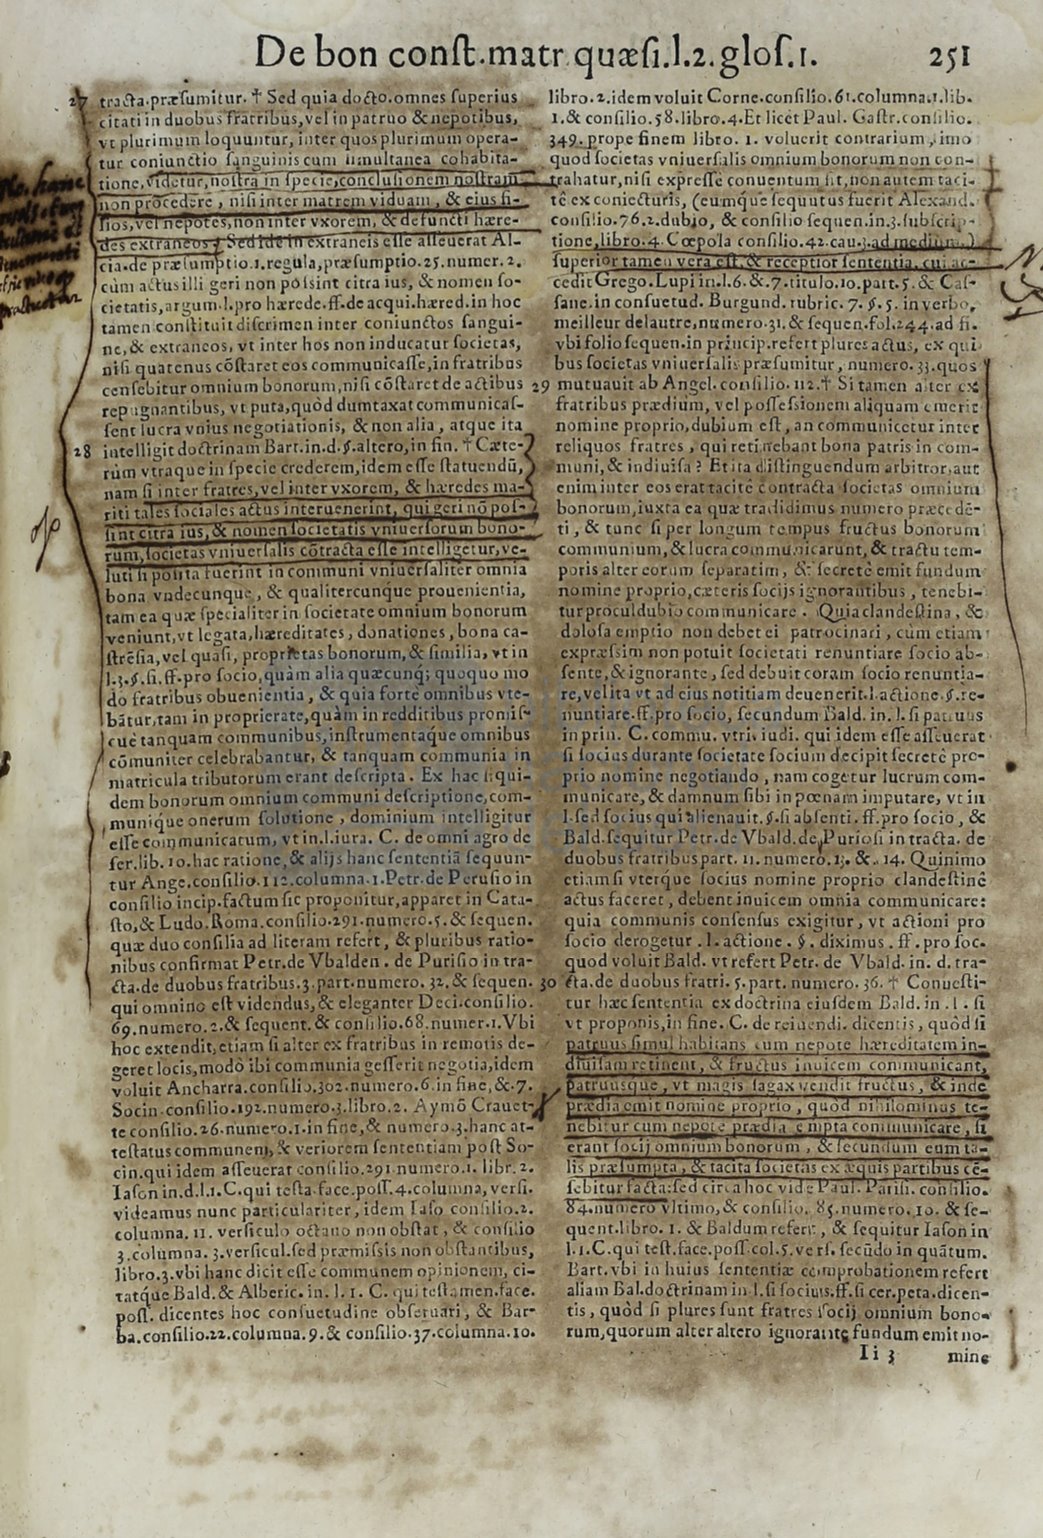 De bon conſt.matr quæſi.l.2.gloſ.1. 251
27 tracta.præſumitur. † Sed quia docto.omnes ſuperius
citati in duobus fratribus,vel in patruo & nepotibus,
vt plurimum loquuntur, inter quos plurimum opera-
tur coniunctio ſanguinis cum ſimultanea cohabita-
tione,videtur,noſtra in ſpecie,concluſionem noſtram
non procedere , niſi inter matrem viduam , & eius fi-
lios,vel nepotes,non inter vxorem, & defuncti hære-
des extraneos : Sed idē in extraneis eſſe aſſeuerat Al-
cia.de præſumptio.1.regula,præſumptio.25.numer.2.
cùm actus illi geri non poſsint citra ius, & nomen ſo-
cietatis,argum.l.pro hærede.ff.de acqui.hæred.in hoc
tamen conſtituit diſcrimen inter coniunctos ſangui-
ne,& extraneos, vt inter hos non inducatur ſocietas,
niſi quatenus cōſtaret eos communicaſſe,in fratribus
cenſebitur omnium bonorum,niſi cōſtaret de actibus
repugnantibus, vt puta,quòd dumtaxat communicaſ-
ſent lucra vnius negotiationis, & non alia , atque ita
28 intelligit doctrinam Bart.in.d.§.altero,in fin. † Cæte-
rùm vtraque in ſpecie crederem,idem eſſe ſtatuendũ,
nam ſi inter fratres,vel inter vxorem, & hæredes ma-
riti tales ſociales actus interuenerint, qui geri nō poſ-
ſint citrà ius, & nomen ſocietatis vniuerſorum bono-
rum,ſocietas vniuerſalis cōtracta eſſe intelligetur,ve-
luti ſi poſita fuerint in communi vniuerſaliter omnia
bona vndecunque , & qualitercunque prouenientia,
tam ea quæ ſpecialiter in ſocietate omnium bonorum
veniunt,vt legata,hæreditates, donationes , bona ca-
ſtrēſia,vel quaſi, proprietas bonorum,& ſimilia, vt in
l.3.§.ſi.ff.pro ſocio,quàm alia quæcunq; quoquo mo
do fratribus obuenientia , & quia fortè omnibus vte-
bātur,tam in proprietate,quàm in redditibus promiſ-
cuè tanquam communibus,inſtrumentaq́ue omnibus
cōmuniter celebrabantur, & tanquam communia in
matricula tributorum erant deſcripta . Ex hac ſiqui-
dem bonorum omnium communi deſcriptione,com-
muniq́ue onerum ſolutione , dominium intelligitur
eſſe communicatum, vt in.l.iura. C. de omni agro de
ſer.lib.10.hac ratione,& alijs hanc ſententiã ſequun-
tur Ange.conſilio.112.columna.1.Petr.de Peruſio in
conſilio incip.factum ſic proponitur,apparet in Cata-
ſto,& Ludo.Roma.conſilio.291.numero.5.& ſequen.
quæ duo conſilia ad literam refert , & pluribus ratio-
nibus confirmat Petr.de Vbalden . de Puriſio in tra-
cta.de duobus fratribus.3.part.numero. 32.& ſequen.
qui omnino eſt videndus,& eleganter Deci.conſilio.
69.numero.2.& ſequent.& conſilio.68.numer.1.Vbi
hoc extendit,etiam ſi alter ex fratribus in remotis de-
geret locis,modò ibi communia geſſerit negotia,idem
voluit Ancharra.conſilio.302.numero.6.in fine,&.7.
Socin.conſilio.192.numero.3.libro.2. Aymō Crauet-
te conſilio.26.numero.1.in fine,& numero.3.hanc at-
teſtatus communem, & veriorem ſententiam poſt So-
cin.qui idem aſſeuerat conſilio.291.numero.1. libr.2.
Iaſon in.d.l.1.C.qui teſta.face.poſſ.4.columna, verſi.
videamus nunc particulariter, idem Iaſo conſilio.2.
columna. 11. verſiculo octauo non obſtat , & conſilio
3.columna. 3.verſicul.ſed præmiſsis non obſtantibus,
libro.3.vbi hanc dicit eſſe communem opinionem, ci-
tatq́ue Bald.& Alberic.in.l.1.C. qui teſtamen.face.
poſſ. dicentes hoc conſuetudine obſeruari , & Bar-
ba.conſilio.22.columna.9.& conſilio.37.columna.10.
libro.2.idem voluit Corne.conſilio.61.columna.1.lib.
1.& conſilio.58.libro.4.Et licèt Paul. Caſtr.conſilio.
349.prope finem libro. 1. voluerit contrarium , imo
quod ſocietas vniuerſalis omnium bonorum non con-
trahatur,niſi expreſſè conuentum ſit,non autem taci-
tè ex coniecturis, (eumque ſequutus fuerit Alexand.
conſilio.76.2.dubio, & conſilio ſequen.in.3.ſubſcrip-
tione,libro.4. Cœpola conſilio.42.cau.3.ad medium.)
ſuperior tamen vera eſt,& receptior ſententia, cui ac-
cedit Grego.Lupi in.l.6.&.7.titulo.10.part.5.& Caſ-
ſane.in conſuetud. Burgund. rubric. 7. §. 5. in verbo,
meilleur delautre,numero.31.& ſequen.fol.244.ad fi.
vbi folio ſequen.in princip.refert plures actus, ex qui
bus ſocietas vniuerſalis præſumitur , numero.33.quos
29 mutuauit ab Angel.conſilio.112.† Si tamen alter ex
fratribus prædium, vel poſſeſsionem aliquam emerit
nomine proprio,dubium eſt , an communicetur inter
reliquos fratres , qui retinebant bona patris in com-
muni,& indiuiſa ? Et ita diſtinguendum arbitror,aut
enim inter eos erat tacitè contracta ſocietas omnium
bonorum,iuxta ea quæ tradidimus numero præcedē-
ti , & tunc ſi per longum tempus fructus bonorum
communium,& lucra communicarunt,& tractu tem-
poris alter eorum ſeparatim , & ſecretè emit fundum
nomine proprio,cæteris ſocijs ignorantibus , tenebi-
tur proculdubio communicare . Quia clandeſtina , &
doloſa emptio non debet ei patrocinari , cum etiam
expræſsim non potuit ſocietati renuntiare ſocio ab-
ſente,& ignorante , ſed debuit coram ſocio renuntia-
re,vel ita vt ad eius notitiam deuenerit.l.actione.§.re-
nuntiare.ff.pro ſocio, ſecundum Bald. in.l.ſi patruus
in prin. C. commu. vtri. iudi. qui idem eſſe aſſeuerat
ſi ſocius durante ſocietate ſocium decipit ſecretè pro-
prio nomine negotiando , nam cogetur lucrum com-
municare, & damnum ſibi in pœnam imputare, vt in
l.ſed ſocius qui alienauit.§.ſi abſenti. ff.pro ſocio , &
Bald.ſequitur Petr.de Vbald.de Purioſi in tracta. de
duobus fratribus part. 11. numero.13. &. 14. Quinimo
etiam ſi vterq́ue ſocius nomine proprio clandeſtinè
actus faceret , debent inuicem omnia communicare:
quia communis conſenſus exigitur , vt actioni pro
ſocio derogetur . l . actione . §. diximus . ff . pro ſoc.
quod voluit Bald. vt refert Petr. de Vbald. in. d. tra-
30 cta.de duobus fratri.5.part. numero. 36. † Conueſti-
tur hæc ſententia ex doctrina eiuſdem Bald. in . l . ſi
vt proponis,in fine. C. de rei uendi. dicentis , quòd ſi
patruus ſimul habitans cum nepote hæreditatem in-
diuiſam retinent, & fructus inuicem communicant,
patruuſque , vt magis ſagax vendit fructus , & inde
prædia emit nomine proprio , quòd nihilominus te-
nebitur cum nepote prædia empta communicare, ſi
erant ſocij omnium bonorum , & ſecundum eum ta-
lis præſumpta , & tacita ſocietas ex æquis partibus cē-
ſebitur facta:ſed circa hoc vide Paul. Pariſi. conſilio.
84.numero vltimo,& conſilio. 85.numero.10. & ſe-
quent.libro. 1. & Baldum refert , & ſequitur Iaſon in
l.1.C.qui teſt.face.poſſ.col.5.verſ. ſecūdo in quãtum.
Bart. vbi in huius ſententiæ comprobationem refert
aliam Bal.doctrinam in.l.ſi ſocius.ff.ſi cer.peta.dicen-
tis , quòd ſi plures ſunt fratres ſocij omnium bono-
rum,quorum alter altero ignorante fundum emit no-
Ii 3 mine